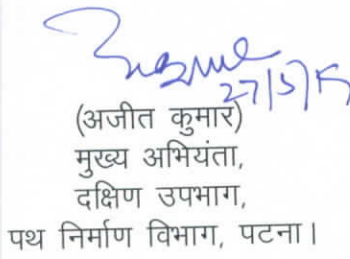 27/5/15
(अजीत कुमार)
मुख्य अभियंता,
दक्षिण उपभाग,
पथ निर्माण विभाग, पटना।